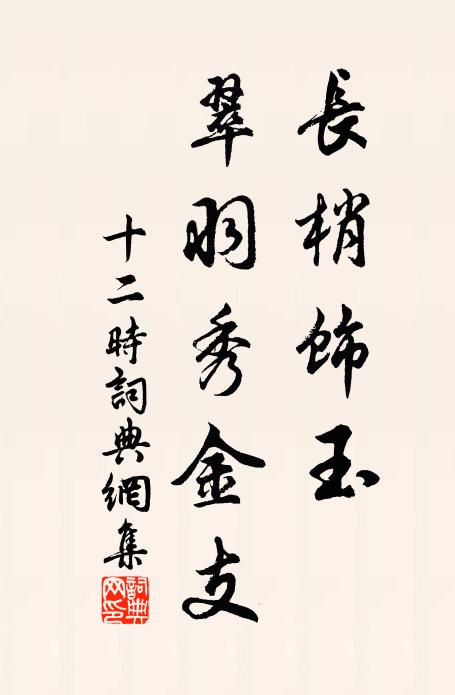 長梢飾玉
翠羽秀金支
十二時詞典網集
詞典
网印